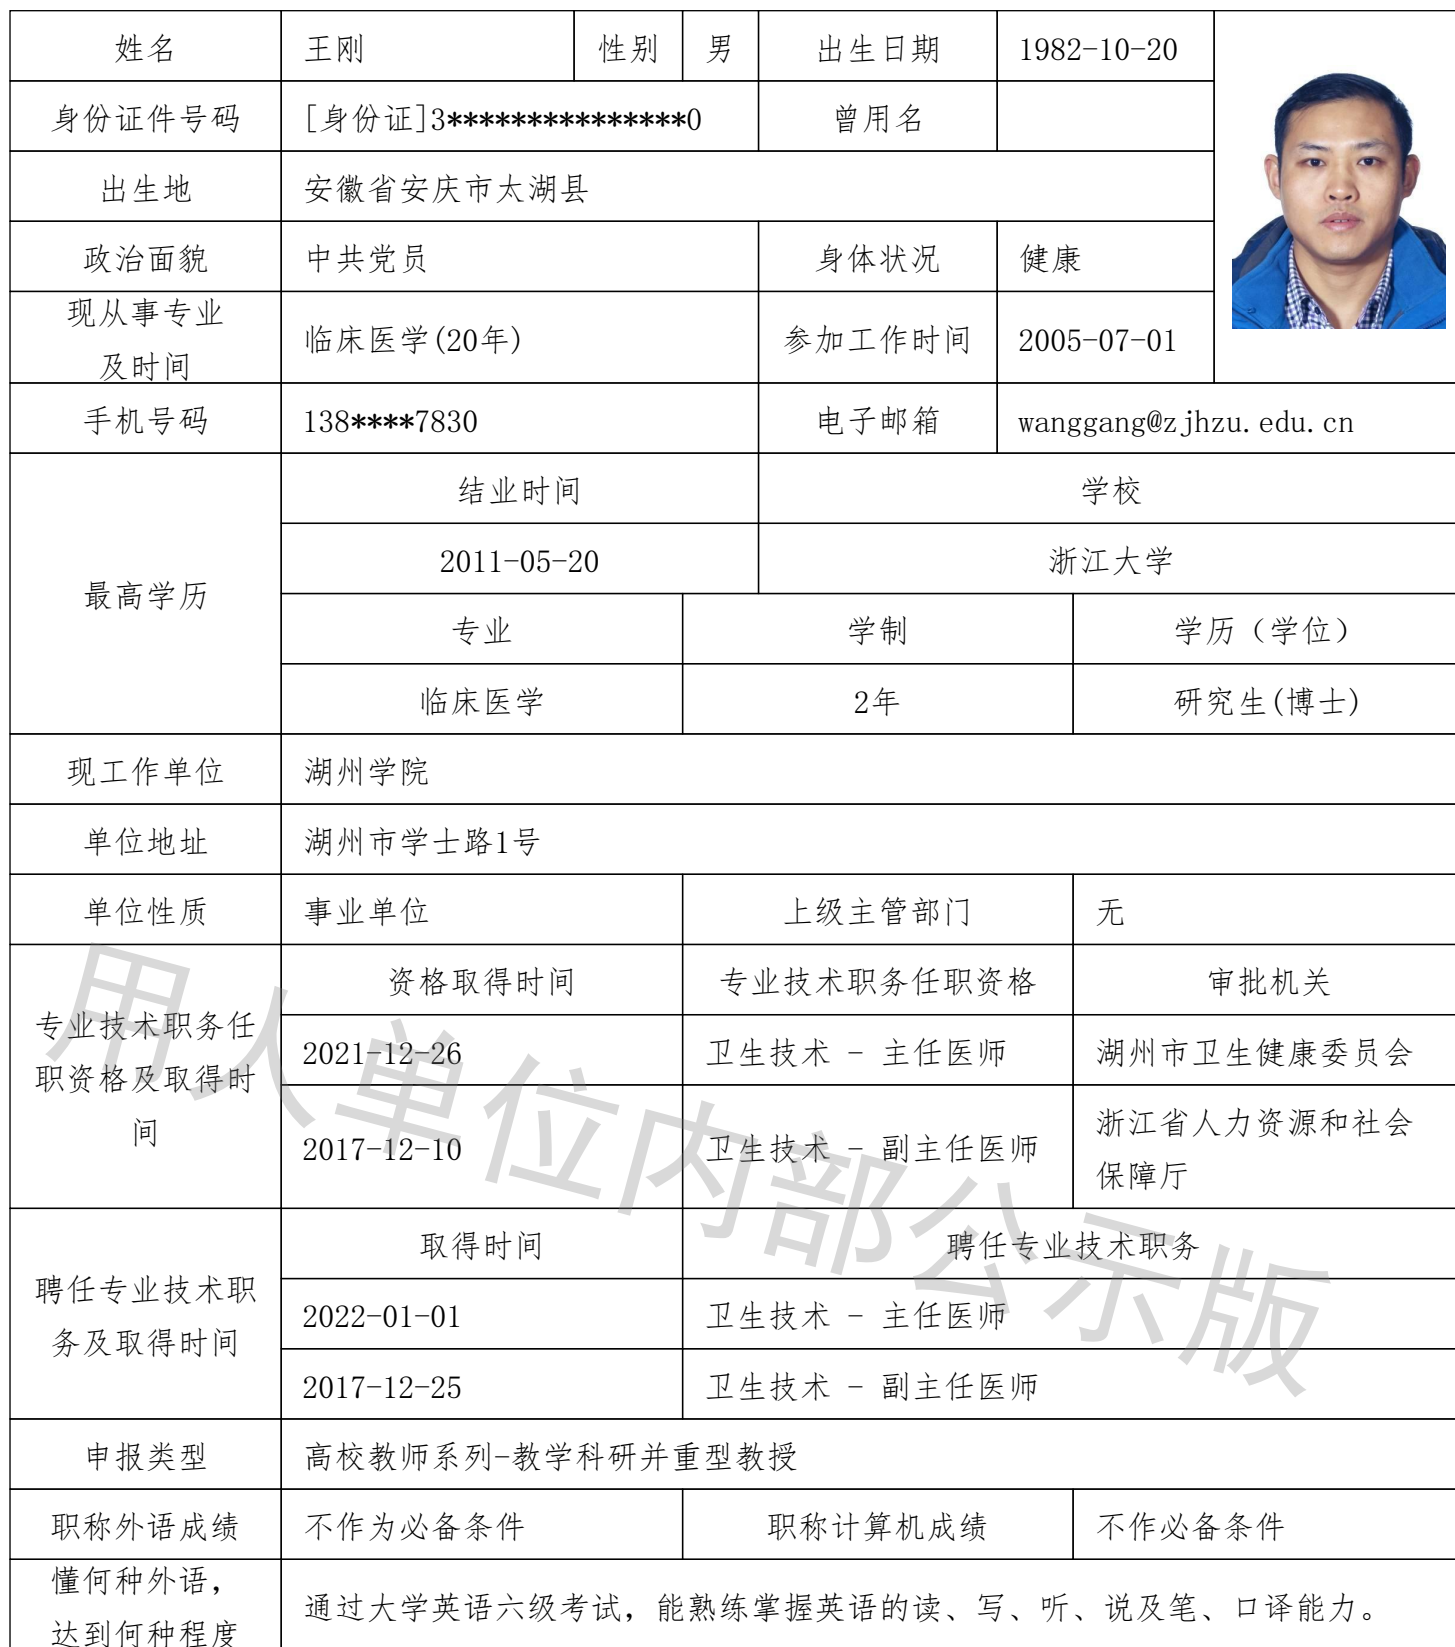 姓名 王刚 性别 男 出生日期 1982-10-20
身份证件号码 [身份证]3***************0 曾用名
出生地 安徽省安庆市太湖县
政治面貌 中共党员 身体状况 健康
现从事专业
及时间
临床医学(20年) 参加工作时间 2005-07-01
手机号码 138****7830 电子邮箱 wanggang@zjhzu.edu.cn
最高学历
结业时间 学校
2011-05-20 浙江大学
专业 学制 学历（学位）
临床医学 2年 研究生(博士)
现工作单位 湖州学院
单位地址 湖州市学士路1号
单位性质 事业单位 上级主管部门 无
专业技术职务任
职资格及取得时
间
资格取得时间 专业技术职务任职资格 审批机关
2021-12-26 卫生技术 - 主任医师 湖州市卫生健康委员会
2017-12-10 卫生技术 - 副主任医师 浙江省人力资源和社会
保障厅
聘任专业技术职
务及取得时间
取得时间 聘任专业技术职务
2022-01-01 卫生技术 - 主任医师
2017-12-25 卫生技术 - 副主任医师
申报类型 高校教师系列-教学科研并重型教授
职称外语成绩 不作为必备条件 职称计算机成绩 不作必备条件
懂何种外语，
达到何种程度
通过大学英语六级考试，能熟练掌握英语的读、写、听、说及笔、口译能力。
用人单位内部公示版